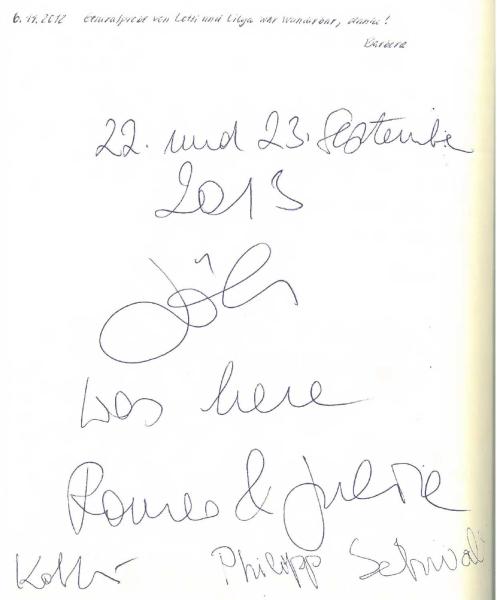 6.11.2012 Generalprobe von Lotti und Libya war wunderbar, danke!
Barbara
22. und 23. September
2013
was here
Romeo & Julia
Philipp